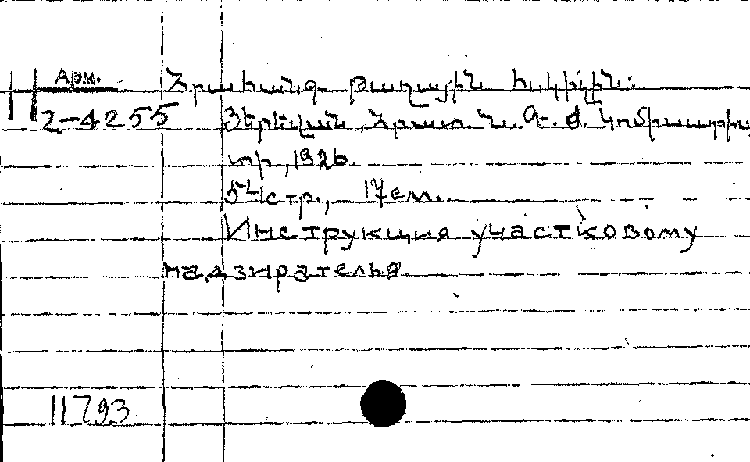 Арм.
Հրահանգ թաղային հսկիչին:
2-4255
Յերեվան, Հրատ. Ն. Գ. Ժ. Կոմիսարիա
տի, 1926.
54 стр., 17 см.
Инструкция участковому
надзирателью.
11793